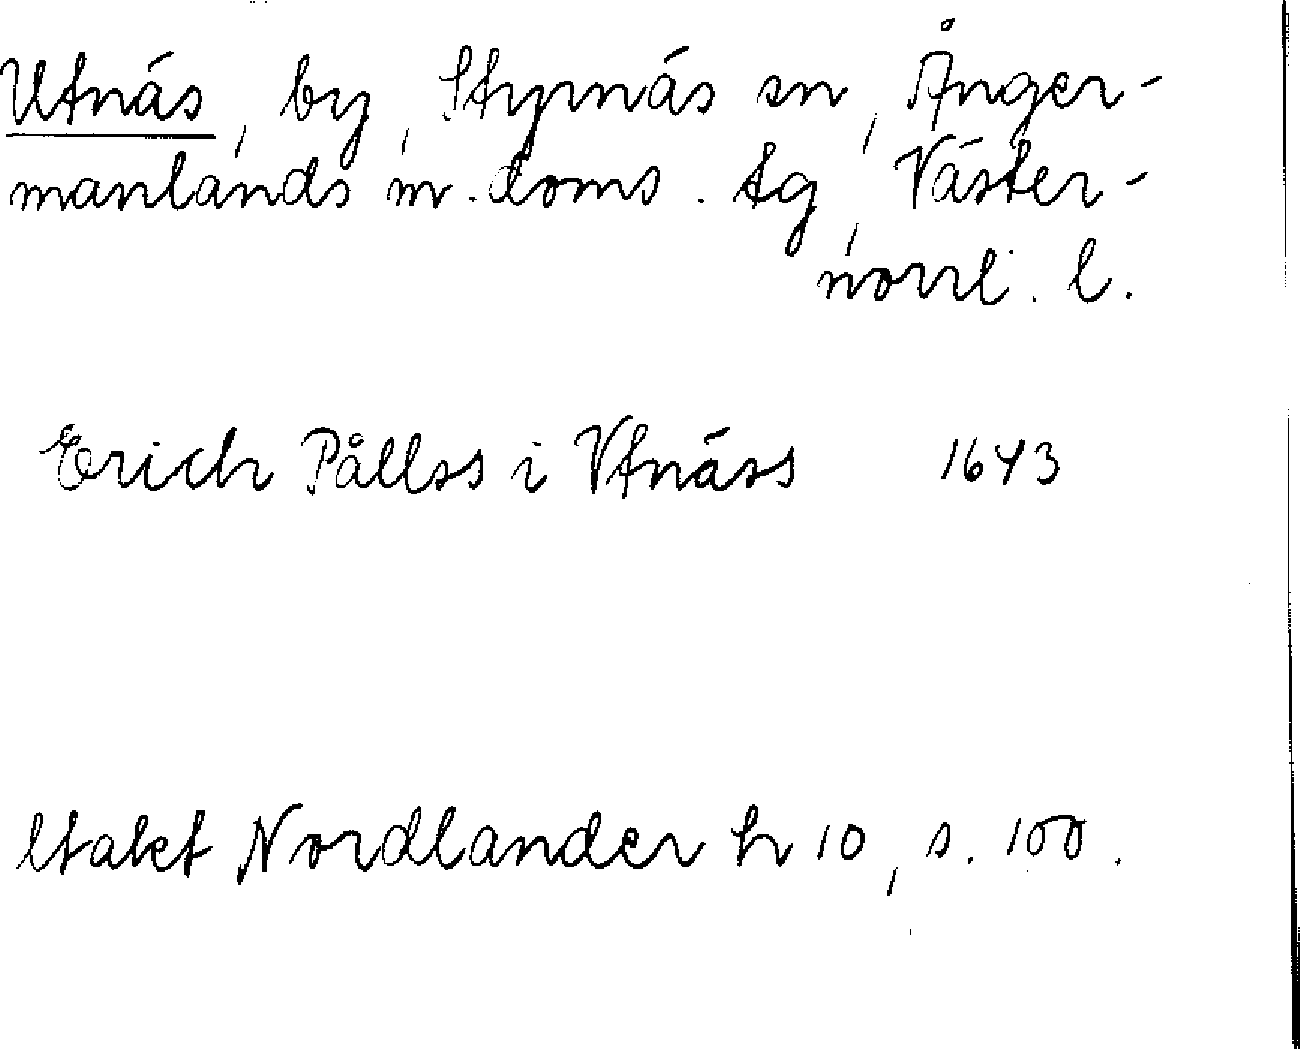 Utnäs, by, Styrnäs sn, Ånger-
manlands m. doms. tg, Väster-
norrl. l.
Erich Pållss i Vtnäss 1643
Utakt Nordlander h 10, s. 100.